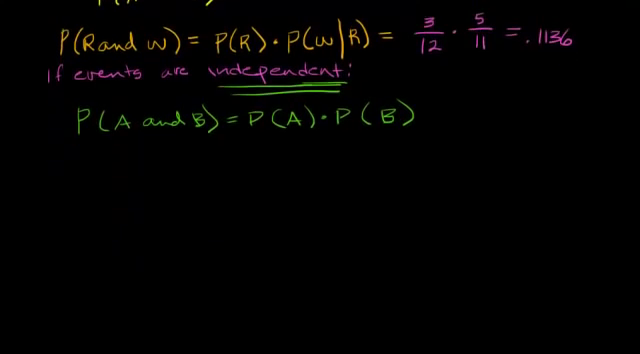 P(R and W) = P(R) · P(W|R) = 3/12 · 5/11 = .1136
If events are independent:
P(A and B) = P(A) · P(B)